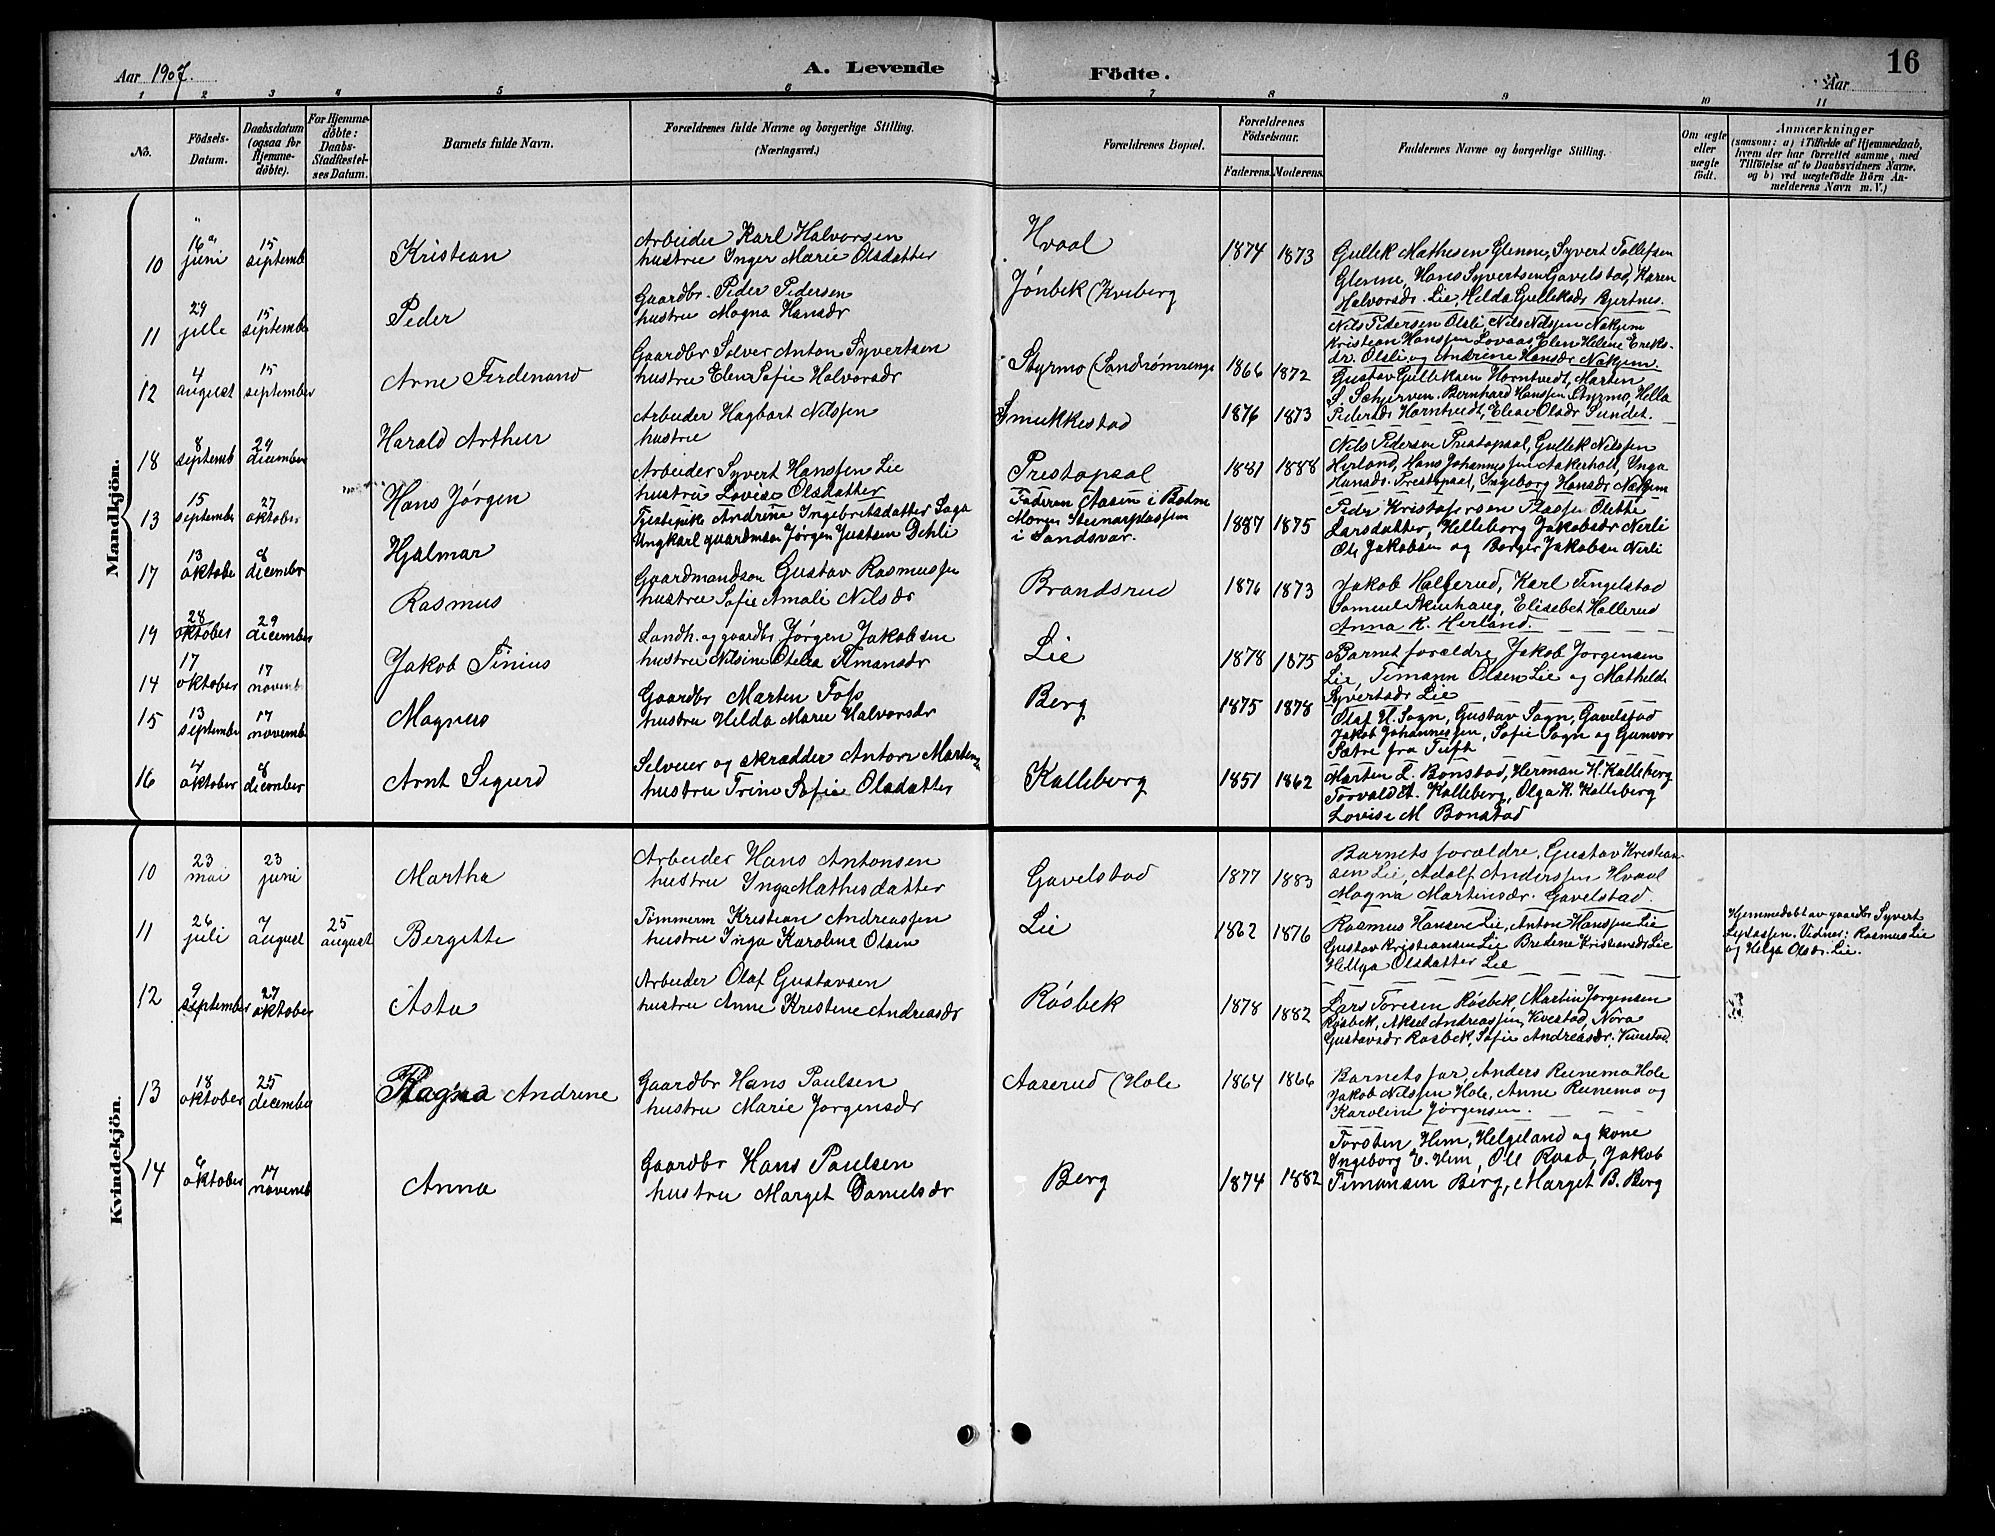 Aar 1907.
A. Levende
Födte.
Aar
16
1 2 3 4 5 6 7 8 9 10 11
No.
Födsels-
Datum.
Daabsdatum
(ogsaa for
Hjemme-
döbte).
For Hjemme-
döbte:
Daabs-
Stadfæstel-
ses Datum.
Barnets fulde Navn.
Forældrenes fulde Navne og borgerlige Stilling.
(Næringsvei.)
Forældrenes Bopæl.
Forældrenes
Födselsaar.
Faderens. Moderens.
Faddernes Navne og borgerlige Stilling.
Om ægte
eller
uægte
födt.
Anmærkninger
(saasom: a) i Tilfælde af Hjemmedaab,
hvem der har forrettet samme, med
Tilföielse af to Daabsvidners Navne.
og b) ved uægtefödte Börn An-
melderens Navn m. V.)
Mandkjön.
10
16
juni
15
septemb
Kristian
Arbeider Karl Halvorsen
hustru Inger Marie Olsdatter
Hvaal
1874 1873
Gullek Mathesen Glenne, Syvert Tollefsen
Glenne, Hans Syvertsen Gavelstad, Karen
Halvorsdr. Lie, Helda Gulleksdr Bjertnes.
11
29
julle
15
september
Peder
Gaardbr. Peder Pedersen
hustru Magna Hansdr
Jónbek (Kveberg
Nils Pedersen Olsli, Nils Nilssen Nakjem
Kristian Hanssen Lovaas, Elen Helene Ereks-
dr. Olsli og Andrene Hansdr Nakjem.
12
4
august
15
september
Arne Ferdenand
Gaardbr Solver Anton Syvertsen
hustru Elen Sofie Halvorsdr
Styrmo (Sandrømrenge
1866 1872
Gustav Gulleksen Horntvedt, Marten
S. Schjerven. Bernhard Hanssen Styrmo, Hella
Pedersdr Horntvedt, Elear Olsdr Sundet.
18
8
septemb
24
december
Harald Arthur
Arbeider Hagbart Nilssen
hustru
Smukkestad
1876 1873
Nils Pedersen Prestopsal, Gullek Nilssen
Herland, Hans Johannessen Aakerholt, Ynga
Hansdr. Prestopsal, Ingeborg Hansdr Nakjem
13
15
september
27
oktober
Hans Jørgen
Arbeider Syvert Hanssen Lie
hustru Lovise Olsdatter
Prestopsal
1881 1888
Peder Kristofersen Plassen Olette
Larsdatter, Helleborg Jakobsdr Nerli
Ole Jakobsen og Borger Jakobsen Nerli
17
13
oktober
8
december
Hjalmar
Tjenstepike Andrene Ingebretsdatter Saga
Ungkarl gaardmson Jørgen Justsen Dehli
Faderen Aasen i Bøhme
Moren Steinarplassen
i Sandsvær.
1887 1875
19
28
oktober
29
december
Rasmus
Gaardmandsøn Gustav Rasmussen
hustru Sofie Amali Nilsdr
Brandsrud
1876 1873
Jakob Halferud, Karl Tingelstad
Samuel Skinhaug, Elisebet Hallerud
Anna K. Herland.
14
17
oktober
17
novemb
Jakob Tinius
Landh. og gaardbr Jørgen Jakobsen
hustru Nilsine Otelia Timansdr
Lie
1878 1875
Barnet forældre, Jakob Jørgensen
Lie, Timann Olsen Lie og Mathilde
Syvertsdr Lie
15
13
september
17
novembe
Magnus
Gaardbr Marten Foss
hustru Helda Marie Halvorsdr
Berg
1875 1878
Olaf H. Sogn, Gustav Sogn, Gavelstad
Jakob Johannessen, Sofie Sogn og Gunvor
Sætre fra Tuft
16
4
oktober
8
december
Arnt Sigurd
Selveier og skrædder Anton Martens
hustru Trine Sofie Olsdatter
Kalleberg
1851 1862
Marten L. Bonstad, Herman H. Kalleberg
Torvald A. Kalleberg, Olga K. Kalleberg
Lovise M Bonstad
Kvindekjön.
10
23
mai
23
juni
Martha
Arbeider Hans Antonsen
hustru Ynga Mathisdatter
Gavelstad
1877 1883
Barnets forældre, Gustav Kristian-
sen Lie, Adolf Anderssen Hvaal
Magna Martinsdr. Gavelstad.
11
26
juli
7
august
25
august
Bergitte
Tømmerm Kristian Andreassen
hustru Inga Karoline Olsen
Lie
1862 1876
Rasmus Hansen Lie, Anton Hanssen Lie
Gustav Kristiansen Lie Bredene Kristiansdr Lie
Hellga Olsdatter Lie
Hjemmedøbt av gaardbr Syvert
Vidner: Rasmus Lie
og Helga Olsdr. Lie.
12
9
september
27
oktober
Asta
Arbeider Olaf Gustavsen
hustru Anne Kristine Andreasdr
Røsbek
1878 1882
Lars Toresen Røsbek, Martin Jørgensen
Røsbek, Aksel Andreassen, Kvestad, Nora
Gustavsdr Røsbek, Sofie Andreasdr. Kvestad.
13
18
oktober
25
december
Ragna Andrene
Gaardbr Hans Paulsen
hustru Marie Jørgensdr
Aaserud (Hole
1864 1866
Barnets far, Anders Runemo Hole
Jakob Nilssen Hole, Anne Runemo og
Karoline Jørgensen.
14
6
oktober
17
novemb
Anna
Gaardbr Hans Paulsen
hustru Marget Danielsdr
Berg
1874 1882
Torsten Hem, Helgeland og kone
Ingeborg E. Hem, Ole Raab, Jakob
Timansen Berg, Marget B. Berg